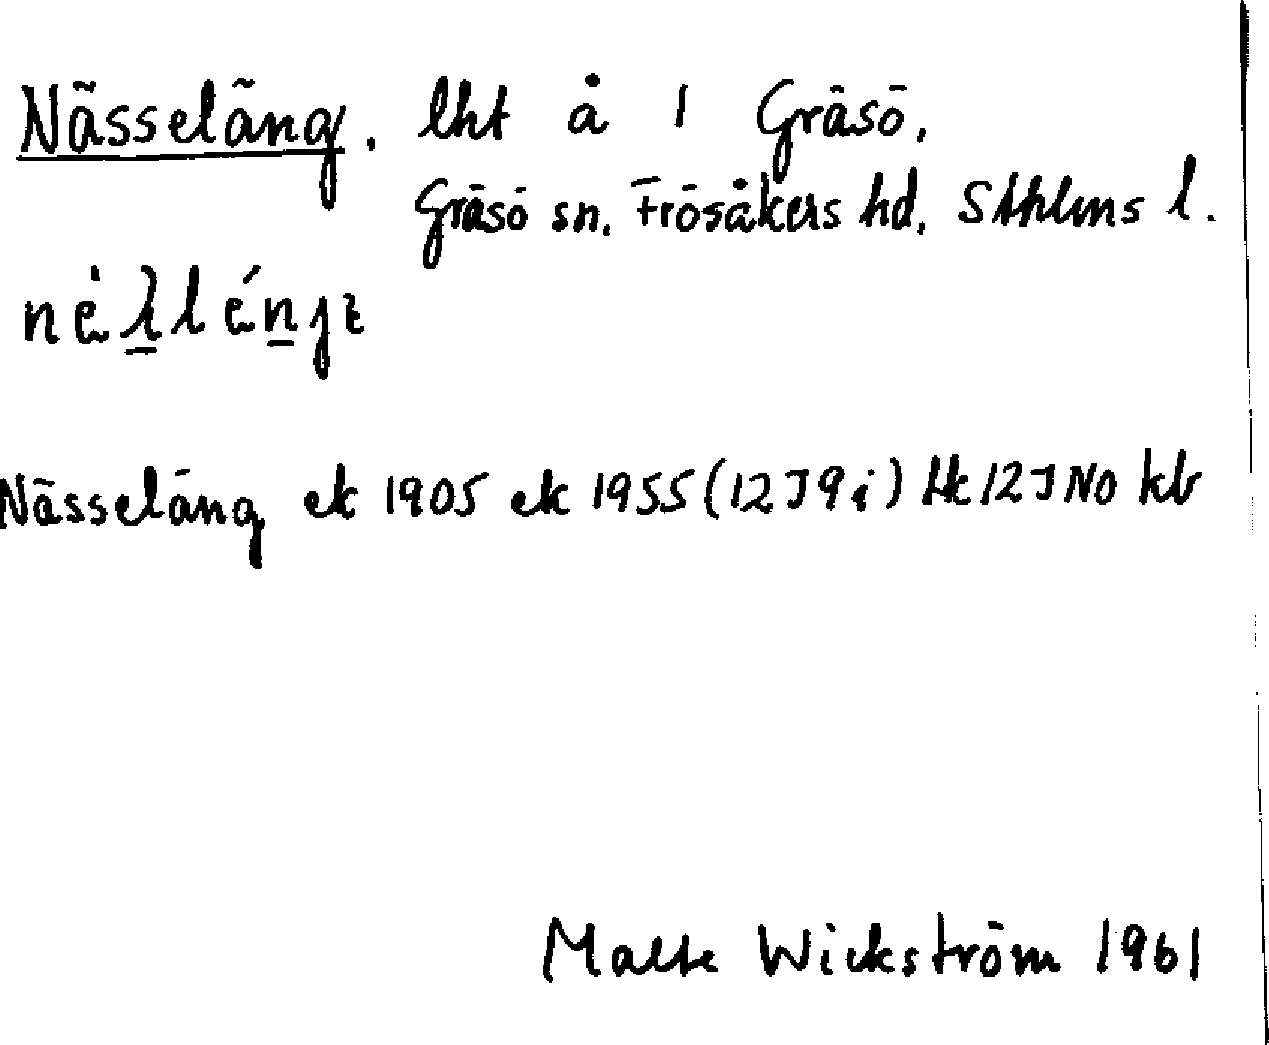 Nässeläng. lht å 1 Gräsö,
Gräsö sn. Frösåkers hd, Sthlms l.
Nässeläng ek 1905 ek 1955 (12 J 9 i) Hk 12 J NO kb
Malte Wickström 1961